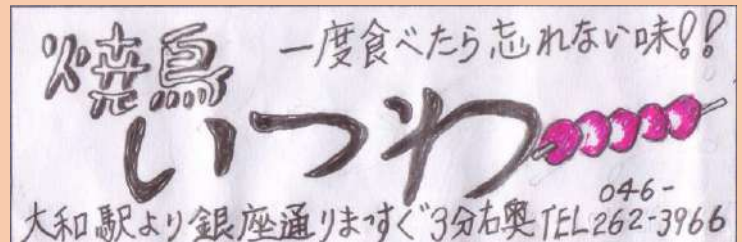 焼鳥 一度食べたら忘れない味!!
いつわ
大和駅より銀座通りまっすぐ3分右奥 TEL 046-262-3966